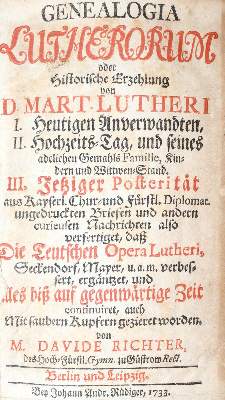 GENEALOGIA
LUTHERORUM
oder
Historische Erzehlung
von
D. MART. LUTHERI
I. Heutigen Anverwandten,
II. Hochzeits-Tag, und seines
adelichen Gemahls Famille, Kin-
dern und Witwen-Stand,
III. Jetziger Posterität
aus Kayserl. Chur- und Fürstl. Diplomat.
ungedruckten Briefen und andern
curieusen Nachrichten also
verfertiget, daß
Die Teutschen Opera Lutheri,
Seckendorf, Mayer, u. a. m. verbes-
sert, ergäntzet, und
Alles biß auf gegenwärtige Zeit
continuiret, auch
Mit saubern Kupfern gezieret worden,
von
M. DAVIDE RICHTER,
des Hoch-Fürstl. Gymn. zu Güstrow Rect.
Berlin und Leipzig.
Bey Johann Andr. Rüdiger, 1733.